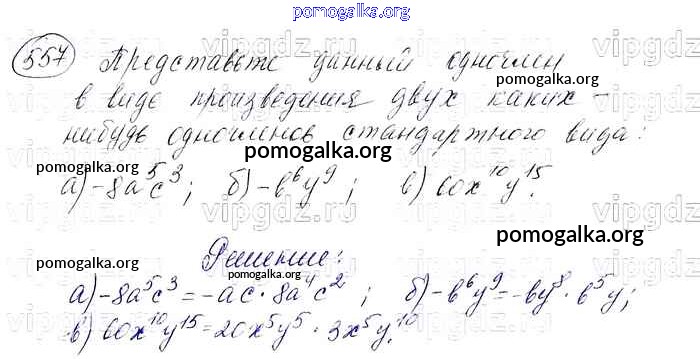 pomogalka.org
557 Представьте данный одночлен
pomogalka.org
в виде произведения двух каких-
нибудь одночленов стандартного вида:
pomogalka.org
pomogalka.org
а) -8a⁵c³; б) -b⁶y⁹; в) 60x¹⁰y¹⁵.
pomogalka.org
Решение:
pomogalka.org
pomogalka.org
а) -8a⁵c³ = -ac · 8a⁴c²; б) -b⁶y⁹ = -by⁸ · b⁵y;
в) 60x¹⁰y¹⁵ = 20x⁵y⁵ · 3x⁵y¹⁰.
pomogalka.org
vipgdz.ru